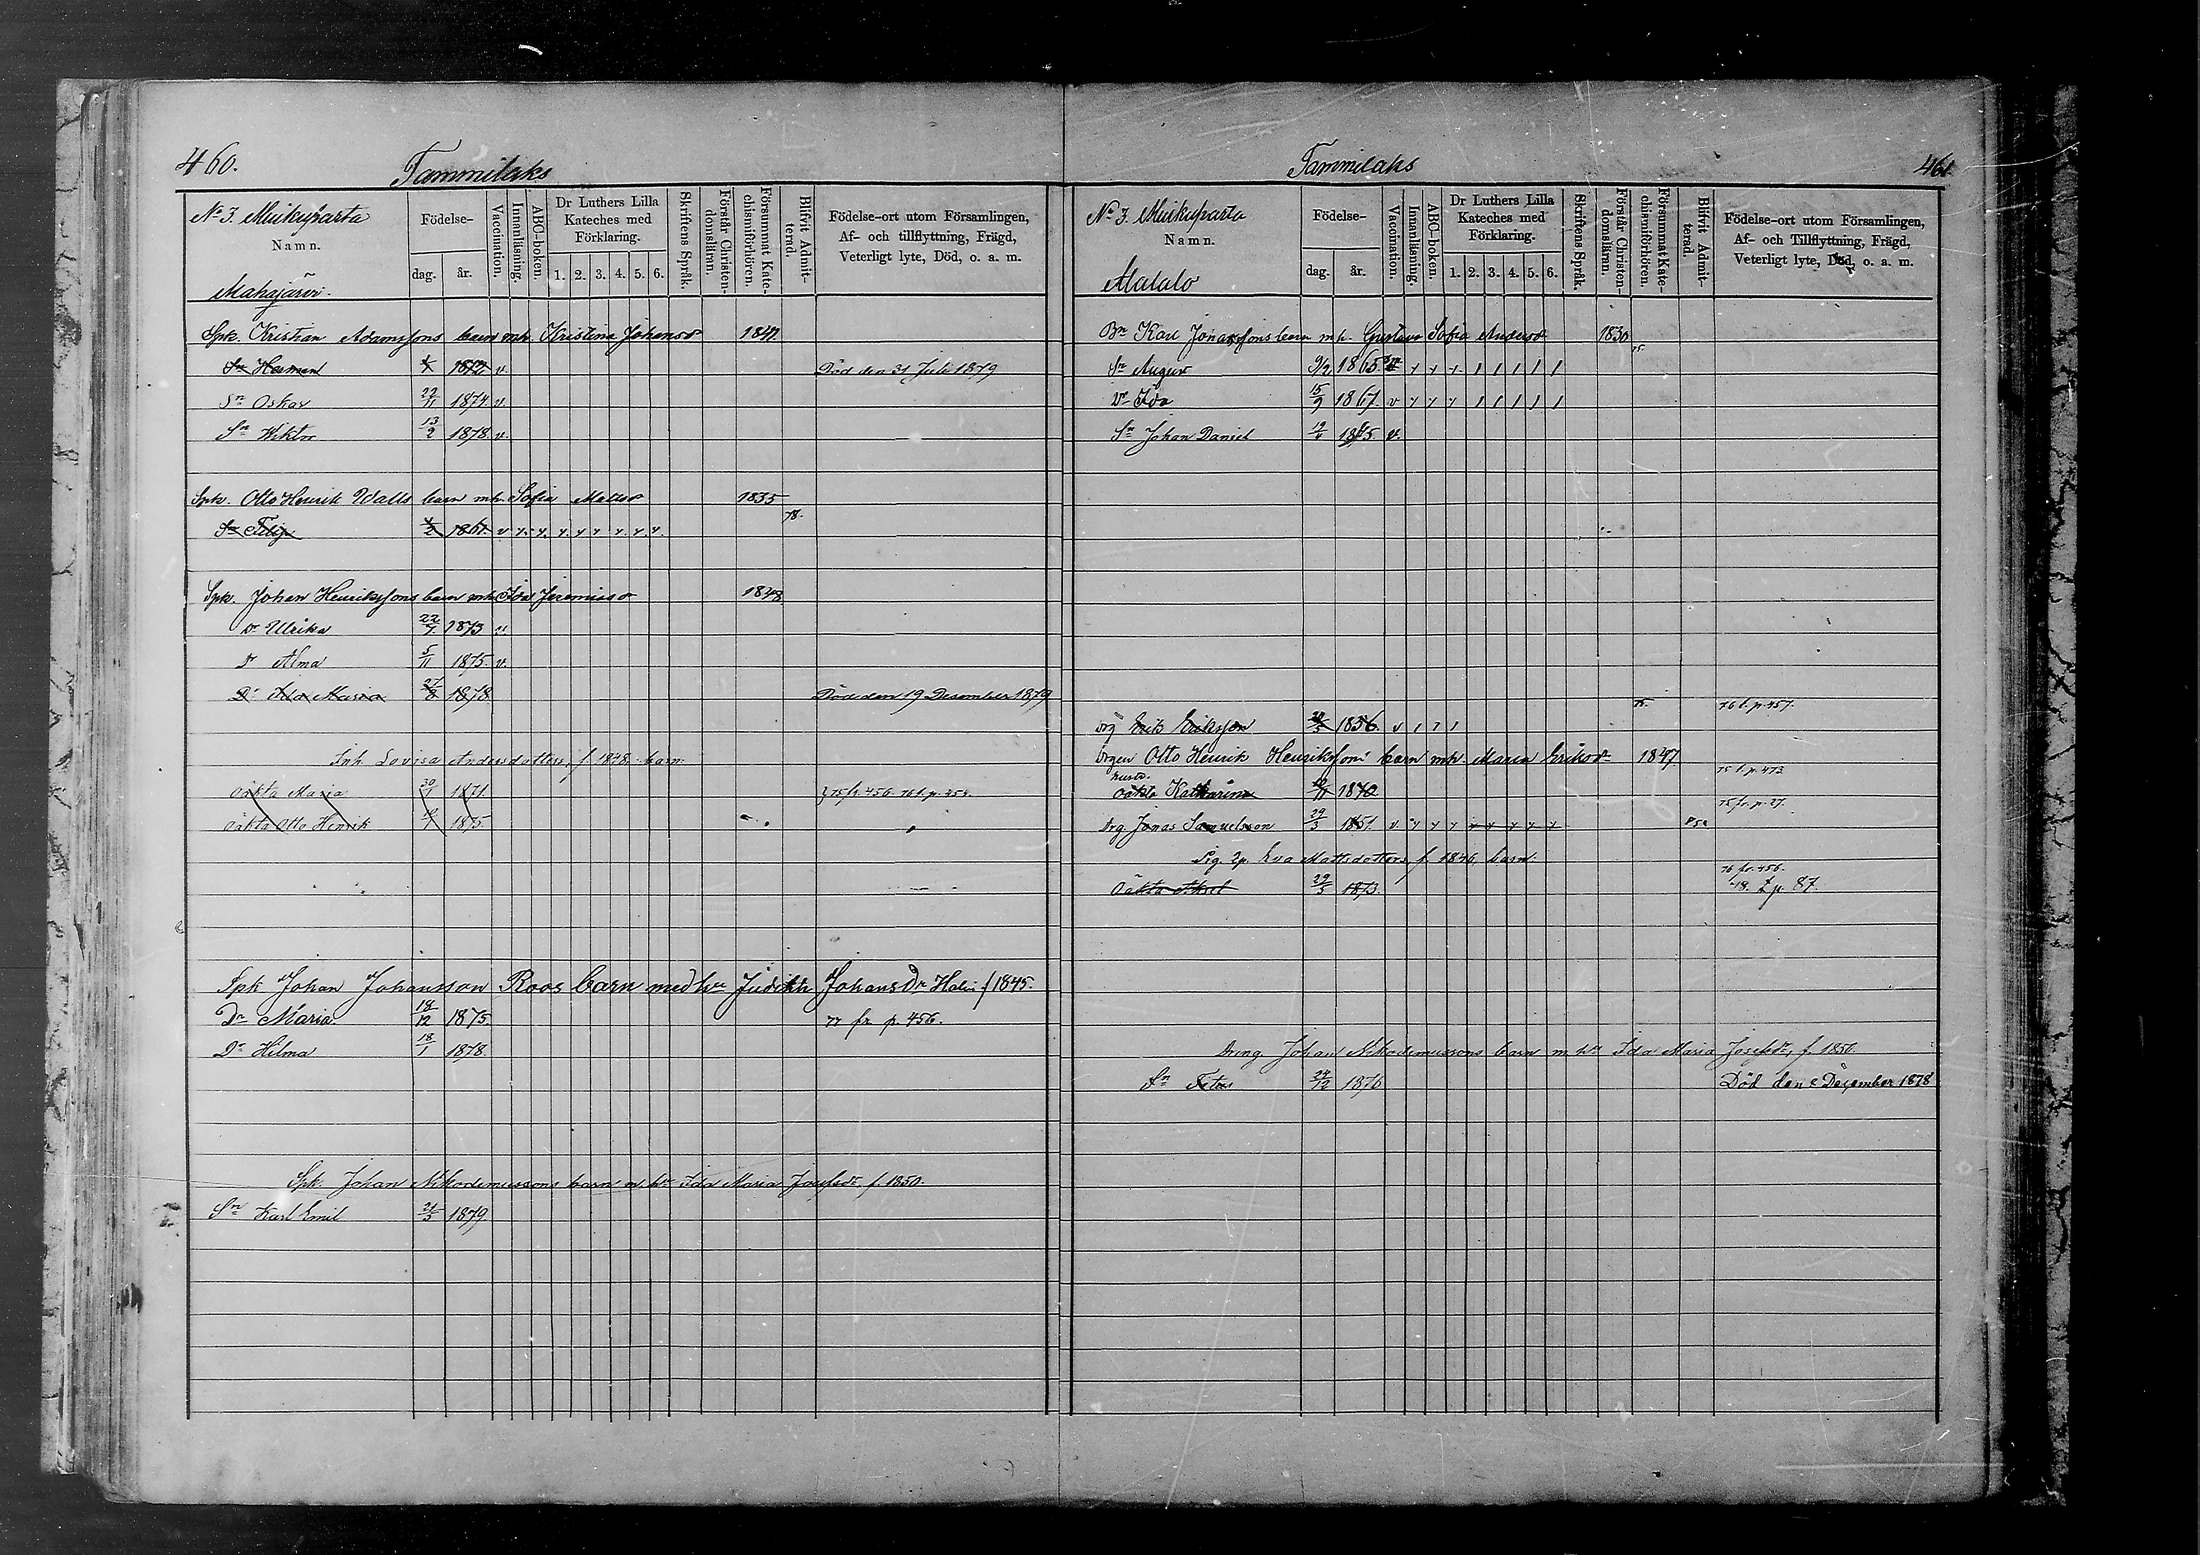 460.
Tammilaks
No 3. Muikuparta
Namn.
Mahajärvi.
Födelse-
dag. år.
Vaccination.
Innanläsning.
ABC-boken.
Dr Luthers Lilla Kateches med Förklaring.
1. 2. 3. 4. 5. 6.
Skriftens Språk.
Förstår Christendomsläran.
Försummat Katechismiförhören.
Blifvit Admitterad.
Födelse-ort utom Församlingen,
Af- och tillflyttning, Frägd,
Veterligt lyte, Död, o. a. m.
Spk. Kristian Adamssons barn mh. Kristina Johansd
Sn Herman 1872 v. Död den 31 Juli 1879
Sn Oskar 22/11 1874 v.
Sn Wiktor 13/2 1878. v.
Spk. Otto Henrik Walls barn mh. Sofia Mattsd 1835
78.
1861. v
Spk. Johan Henrikssons barn mh. Ida Jeremiasd 1848
Dr Ulrika 22/7 1873 v.
Dr Alma 5/11 1875. v.
Dr Ida Maria 27/8 1878 Död den 19 Desember 1879
Inh. Lovisa Andersdotters, f. 1848. barn:
Oäkta Maria 30/1 1871 75 fr. 456. 76 t. p. 354.
Oäkta Otto Henrik 1875.
Spk Johan Johansson Roos barn med hu Judith Johans Dr f 1845.
Dr Maria 18/12 1875. 77 fr. p. 456.
Dr Hilma 18/1 1878.
Spk. Johan Nikodemussons barn m. hu Ida Maria Josefsdr f. 1850.
Sn Karl Emil 21/3 1879
Tammilaks
461
No 3. Muikuparta
Namn.
Alatalo
Födelse-
dag. år.
Vaccination.
Innanläsning.
ABC-boken.
Dr Luthers Lilla Kateches med Förklaring.
1. 2. 3. 4. 5. 6.
Skriftens Språk.
Förstår Christendomsläran.
Försummat Katechismiförhören.
Blifvit Admitterad.
Födelse-ort utom Församlingen,
Af- och Tillflyttning, Frägd,
Veterligt lyte, Död, o. a. m.
Bn Karl Jonassons barn mh. Gustava Sofia Andersd 1830
Sn August 9/2 1865
Dr Ida 15/9 1861. v
Sn Johan Daniel v.
76 t. p. 457.
Drg Erik Eriksson 1856. v
Drgen Otto Henrik Henrikssons barn mh. Maria Eriksdr 1847
75 t. p. 473.
Oäkta Katharina 1870
75 fr. p. 27.
Drg Jonas Samuelsson 29/3 1851. v
Pig. 2p. Eva Mattsdotters, f. 1846, barn:
76 fr. 456.
Oäkta Aksel 29/3 1873. 78. t p 87.
Dreng Johan Nikodemussons barn m. hu Ida Maria Josefsdr, f. 1850.
Sn 24/12 1876 Död den 2 December 1878